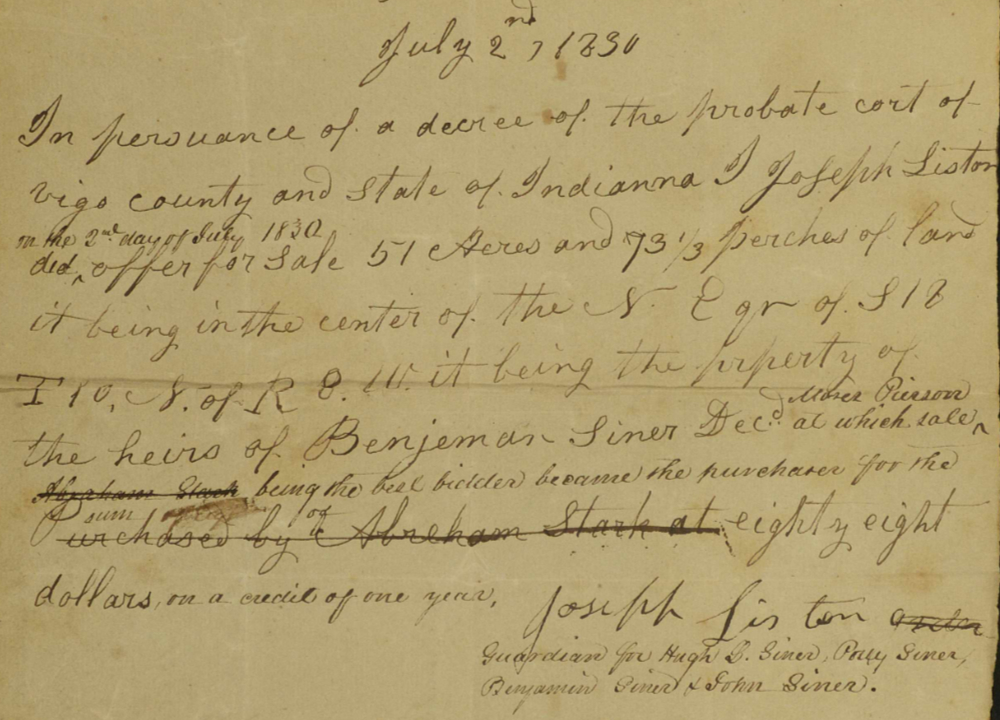 July 2nd, 1830
In persuance of a decree of the probate cort of
vigo county and State of Indianna I Joseph Liston
on the 2nd day of July 1830
did ^ offer for Sale 51 Acres and 73 1/3 perches of land
it being in the center of the N. E qr of S 18
T 10, N. of R 8. W. it being the prperty of
Moses Pierson
the heirs of Benjeman Siner Decd. at which sale ^
Abraham Stark being the best bidder became the purchaser for the
sum of
Purchased by Abreham Stark at eighty eight
dollars, on a credit of one year.
Joseph Liston
Guardian for Hugh L. Siner, Polly Siner,
Benjamin Siner & John Siner.